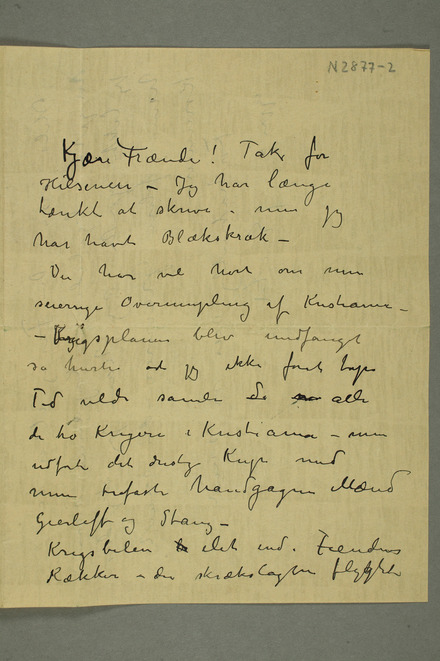 N 2877-2
Kjære Frænde! Tak for
Hilsenen – Jeg har længe
tænkt at skrive – men jeg
har havt Blækskræk –
Du har vel hørt om min
seierrige Overrumpling af Kristiania –
– Krigsplanen blev undfanget
så hurtig at jeg ikke først
Tid vilde samle de alle
de Krigere i Kristiania – men
udførte det dristige Krup med
mine trofaste håndgagne Mænd
Gierløff og Stang –
Krigsbilen ilet ind i Fiendens
Rækker – de skrækslagne flygtede